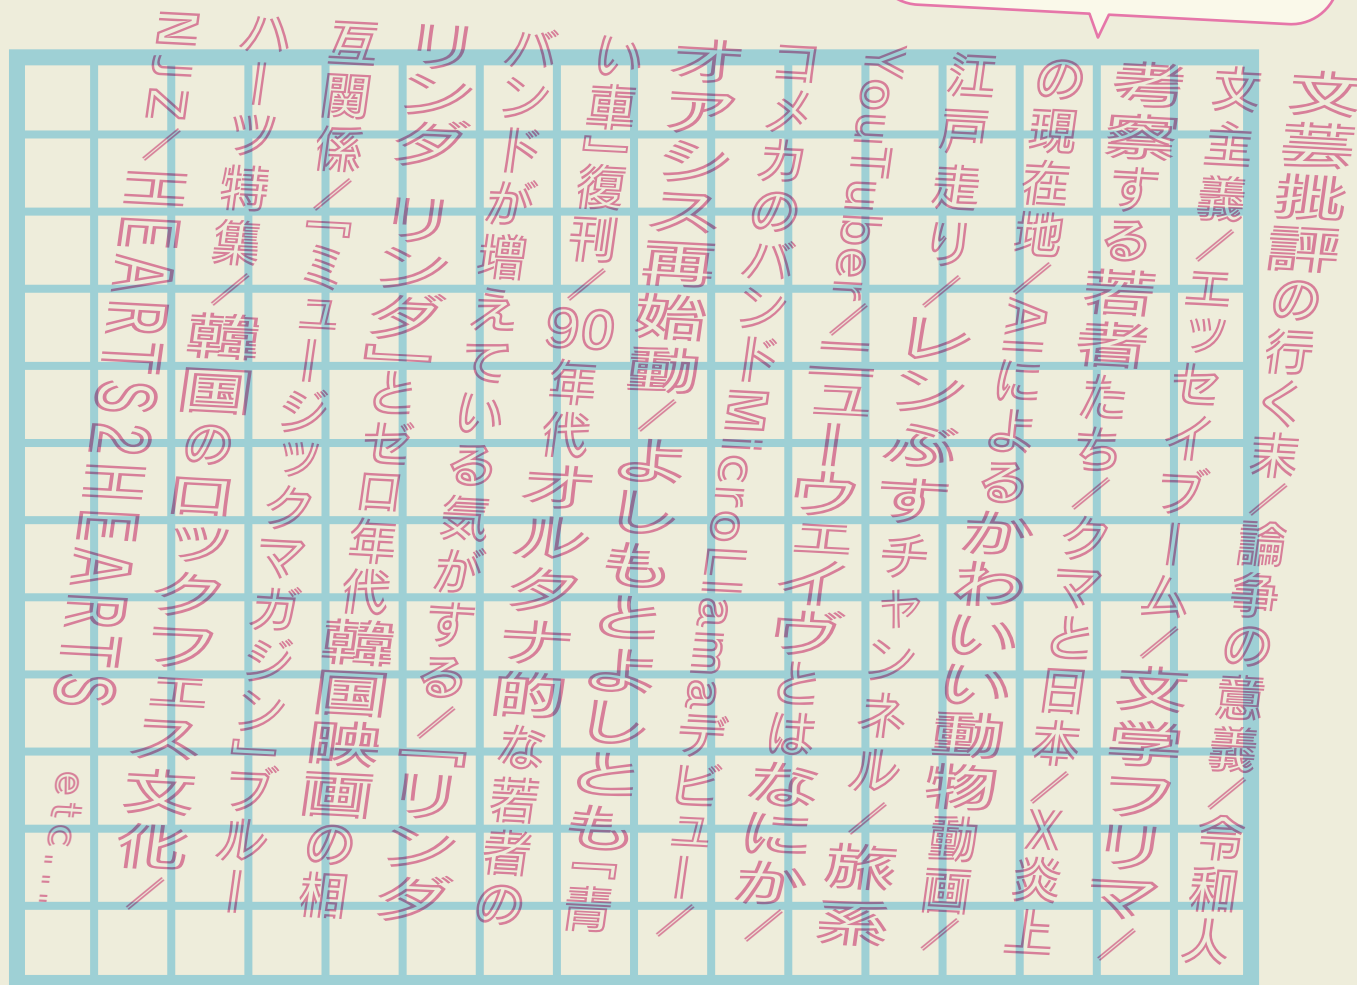 文芸批評の行く末／論争の意義／令和人
文主義／エッセイブーム／文学フリマ／
考察する若者たち／クマと日本／X炎上
の現在地／AIによるかわいい動物動画／
江戸走り／レンぶすチャンネル／旅系
YouTuber／ニューウェイヴとはなにか／
コメカのバンドMicroLlamaデビュー／
オアシス再始動／よしもとよしとも『青
い車』復刊／90年代オルタナ的な若者の
バンドが増えている気がする／『リンダ
リンダ リンダ』とゼロ年代韓国映画の相
互関係／『ミュージックマガジン』ブルー
ハーツ特集／韓国のロックフェス文化／
NJZ／HEARTS2HEARTS etc……